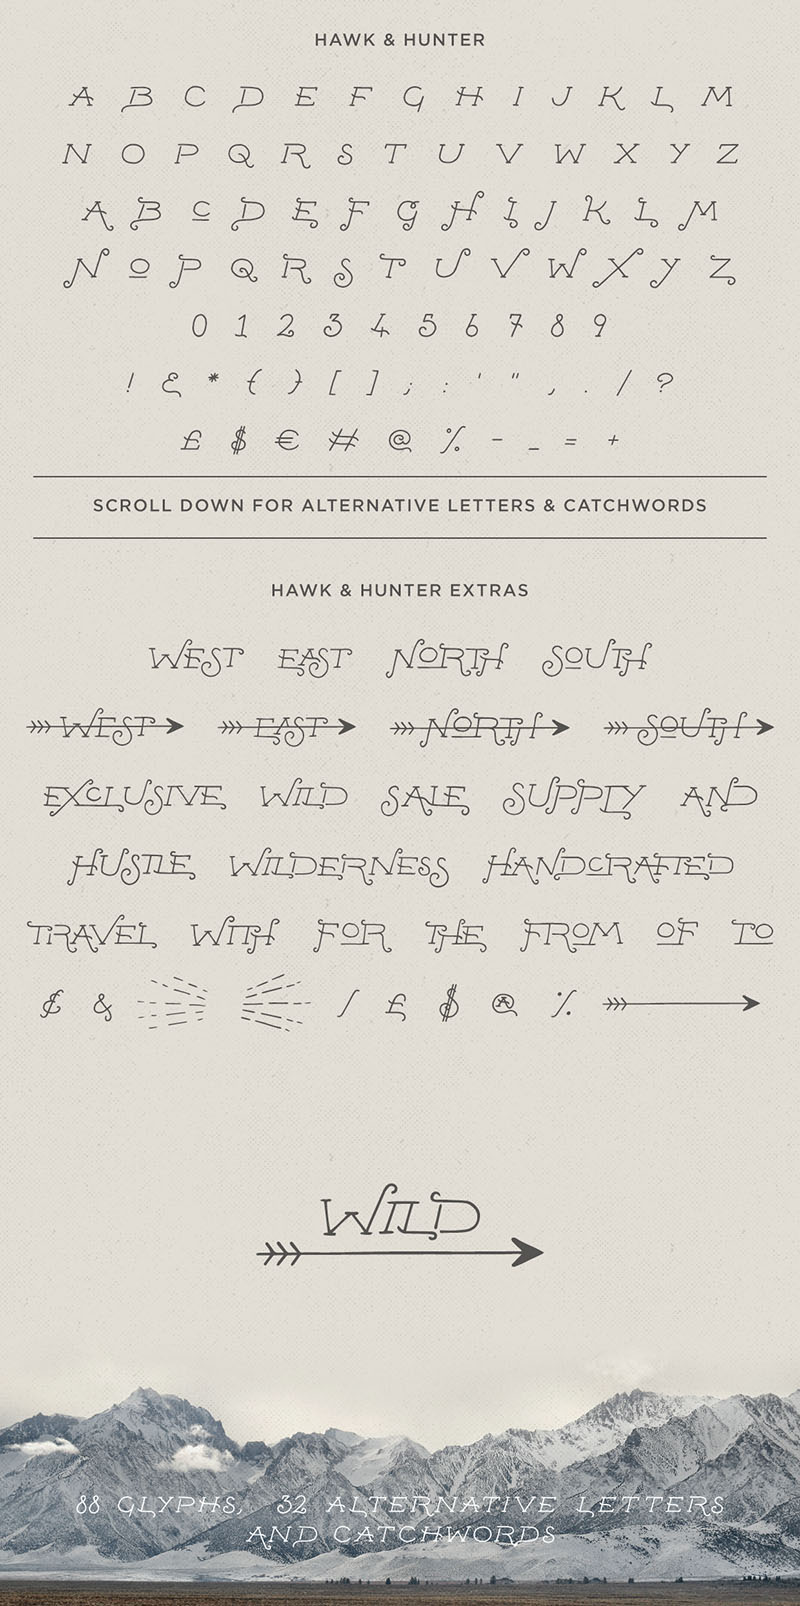 HAWK & HUNTER
A B C D E F G H I J K L M
N O P Q R S T U V W X Y Z
A B C D E F G H I J K L M
N O P Q R S T U V W X Y Z
0 1 2 3 4 5 6 7 8 9
! & * { } [ ] ; : ' " , . / ?
£ $ € # @ % - _ = +
SCROLL DOWN FOR ALTERNATIVE LETTERS & CATCHWORDS
HAWK & HUNTER EXTRAS
WEST EAST NORTH SOUTH
WEST EAST NORTH SOUTH
EXCLUSIVE WILD SALE SUPPLY AND
HUSTLE WILDERNESS HANDCRAFTED
TRAVEL WITH FOR THE FROM OF TO
& / £ $ @ %
WILD
88 GLYPHS, 32 ALTERNATIVE LETTERS
AND CATCHWORDS